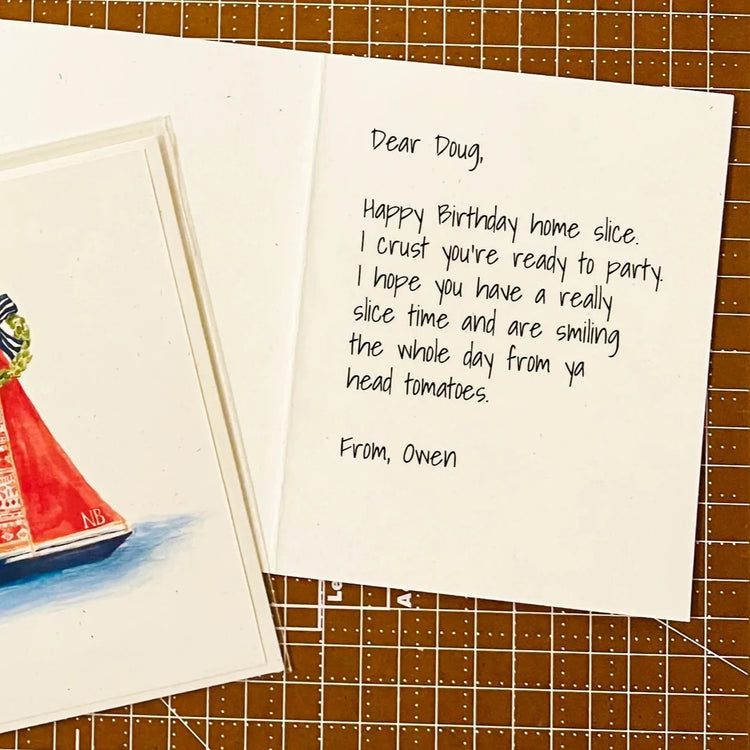 Dear Doug,
Happy Birthday home slice.
I crust you're ready to party.
I hope you have a really
slice time and are smiling
the whole day from ya
head tomatoes.
From, Owen
NB
Le
A